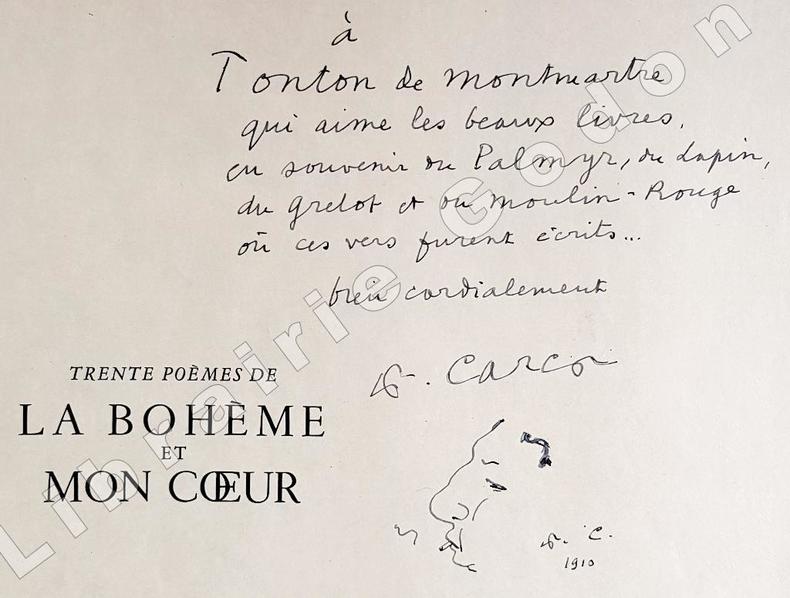 à
Tonton de montmartre
qui aime les beaux livres,
en souvenir du Palmyr, du Lapin,
du grelot et du moulin-Rouge
où ces vers furent écrits...
bien cordialement
F. Carco
TRENTE POÈMES DE
LA BOHÈME
ET
MON CŒUR
F. C.
1910
Librairie Godon